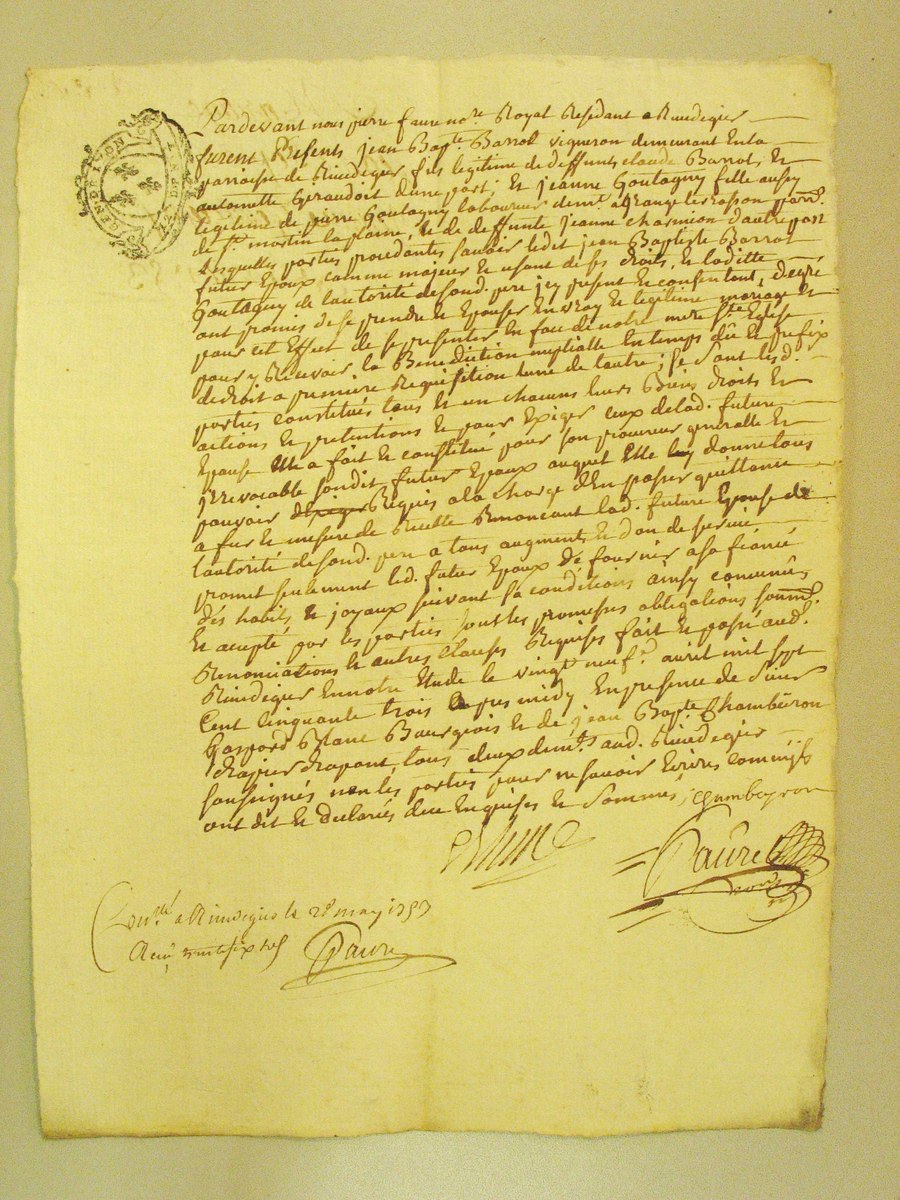 GEN. DE LYON
Pardevant nous pierre faure no.re Royal Residant a Rivedegier
furent Presents jean Bap.te Barrot vigneron demeurant En la
parroisse de Rivedegier fils legitime de deffunts claude Barrot, Et
antoinette Giraudoit d'une part; Et jeanne Goutagny fille aussy
legitime de pierre Goutagny laboureur dem.t a Grange le rasson parr.
de S.t martin la plaine, Et de deffunte jeanne charmion d'autre part
Lesquelles parties procedantes savoir ledit jean Baptiste Barrot
futur Epoux comme majeur Et usant de ses droits, Et laditte
Goutagny de l'autorité de sond. pere jcy present Et consentant, de gré
ont promis de se prendre Et Epouser En vray Et legitime mariage Et
pour cet Effect de se presenter En face de notre mere S.te Eglise
pour y Recevoir la Benediction nuptialle En temps dû Et prefix
de droit a premiere Requisition l'une de l'autre; se sont lesd.
parties constitués tous Et un chacuns leurs Biens droits Et
actions Et pretentions Et pour Exiger ceux de lad. future
Epouse Elle a fait Et constitué pour son procureur generalle Et
jrrevocable sondit futur Epoux auquel Elle luy donne tous
pouvoir Requis a la charge d'En passer quittance
a fur Et mesure de Recette Renonceant lad. future Epouse de
l'autorité de sond. pere a tous augments Et don de survie
promet seulement led. futur Epoux de fournir a sa fiancé
des habits Et joyaux suivant sa conditions ainsy convenûs
Et accepté par les parties sous les promesses obligations soum.
Renonciations Et autres clauses Requises fait Et passé aud.
Rivedegier En notre Etude le vingt neuf.e avril mil sept
Cent Cinquante trois apres midy En presence de Sieur
Gaspard Blanc Bourgeois Et de jean Bap.te Chambeiron
drapier drapant tous deux dem.ts aud. Rivedegier
soussignés non les parties pour ne savoir Ecrire comm'ils
ont dit Et declarés de ce Enquises Et Sommés, chambeyron
Blanc
Faure
no.re
Con.llé a Rivedegier le 28 may 1753
Recû trente six sols
Faure